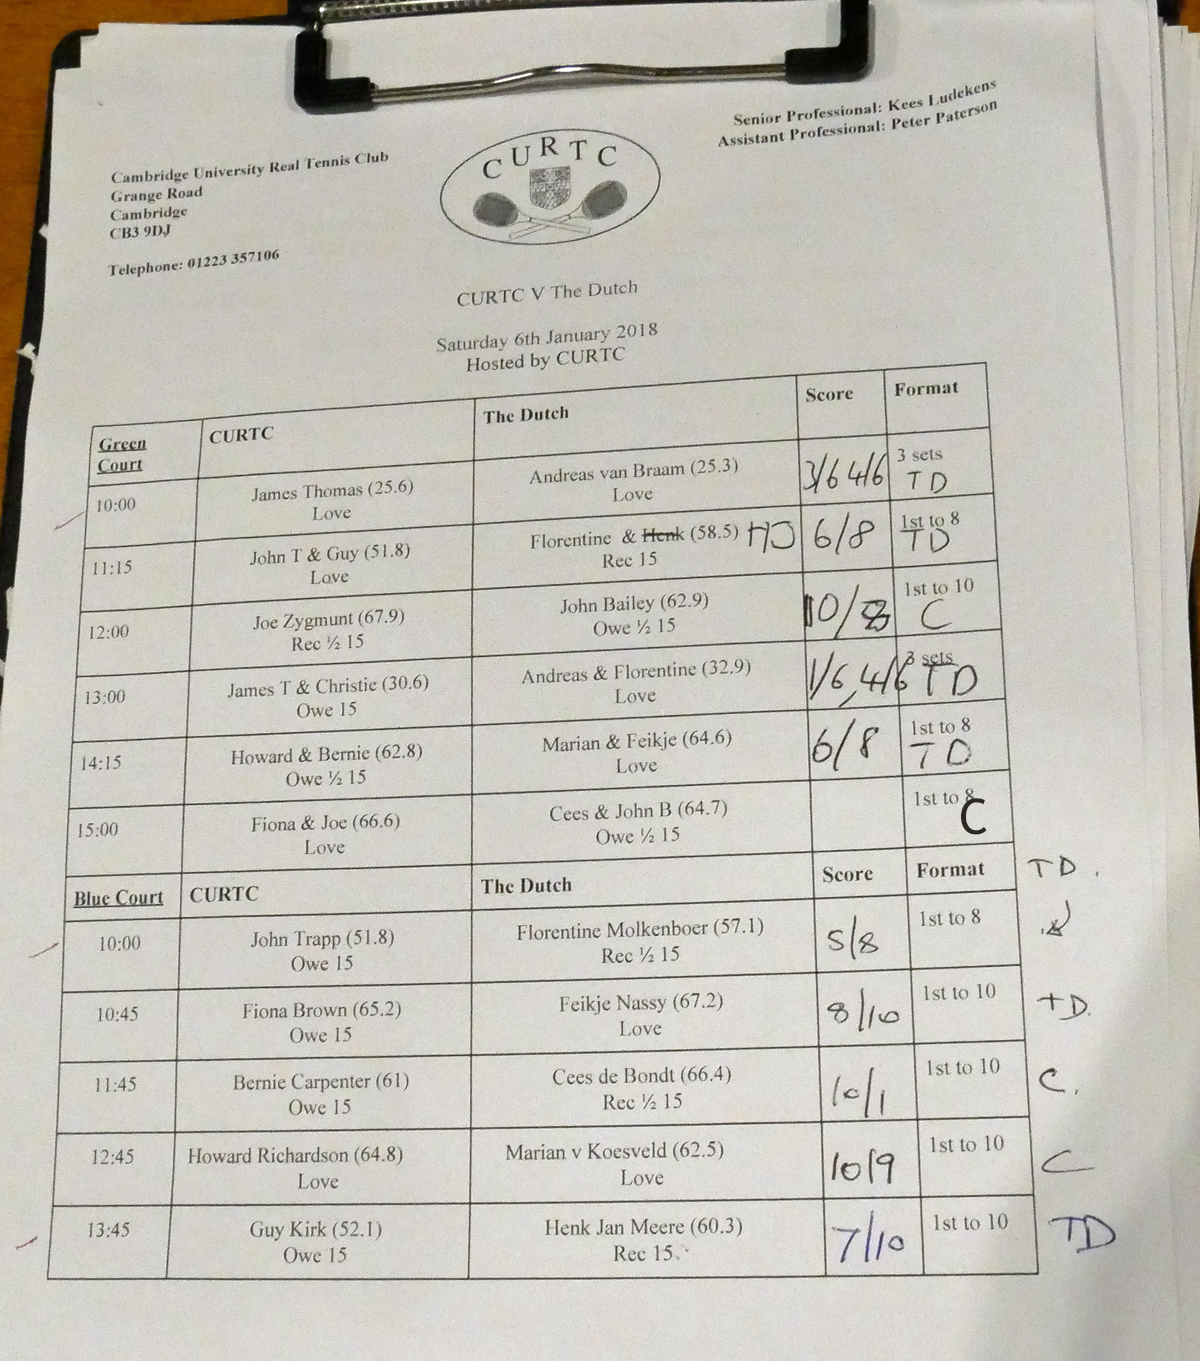 Senior Professional: Kees Ludekens
Assistant Professional: Peter Paterson
Cambridge University Real Tennis Club
Grange Road
Cambridge
CB3 9DJ
Telephone: 01223 357106
CURTC
CURTC V The Dutch
Saturday 6th January 2018
Hosted by CURTC
Green Court CURTC The Dutch Score Format
10:00 James Thomas (25.6) Andreas van Braam (25.3) 3/6 4/6 3 sets
Love Love TD
11:15 John T & Guy (51.8) Florentine & Henk (58.5) HJ 6/8 1st to 8
Love Rec 15 TD
12:00 Joe Zygmunt (67.9) John Bailey (62.9) 10/8 1st to 10
Rec ½ 15 Owe ½ 15 C
13:00 James T & Christie (30.6) Andreas & Florentine (32.9) 1/6, 4/6 3 sets
Owe 15 Love TD
14:15 Howard & Bernie (62.8) Marian & Feikje (64.6) 6/8 1st to 8
Owe ½ 15 Love TD
15:00 Fiona & Joe (66.6) Cees & John B (64.7) 1st to 8
Love Owe ½ 15 C
Blue Court CURTC The Dutch Score Format TD.
10:00 John Trapp (51.8) Florentine Molkenboer (57.1) 5/8 1st to 8
Owe 15 Rec ½ 15
10:45 Fiona Brown (65.2) Feikje Nassy (67.2) 8/10 1st to 10 TD.
Owe 15 Love
11:45 Bernie Carpenter (61) Cees de Bondt (66.4) 10/1 1st to 10 C.
Owe 15 Rec ½ 15
12:45 Howard Richardson (64.8) Marian v Koesveld (62.5) 10/9 1st to 10 C
Love Love
13:45 Guy Kirk (52.1) Henk Jan Meere (60.3) 7/10 1st to 10 TD
Owe 15 Rec 15